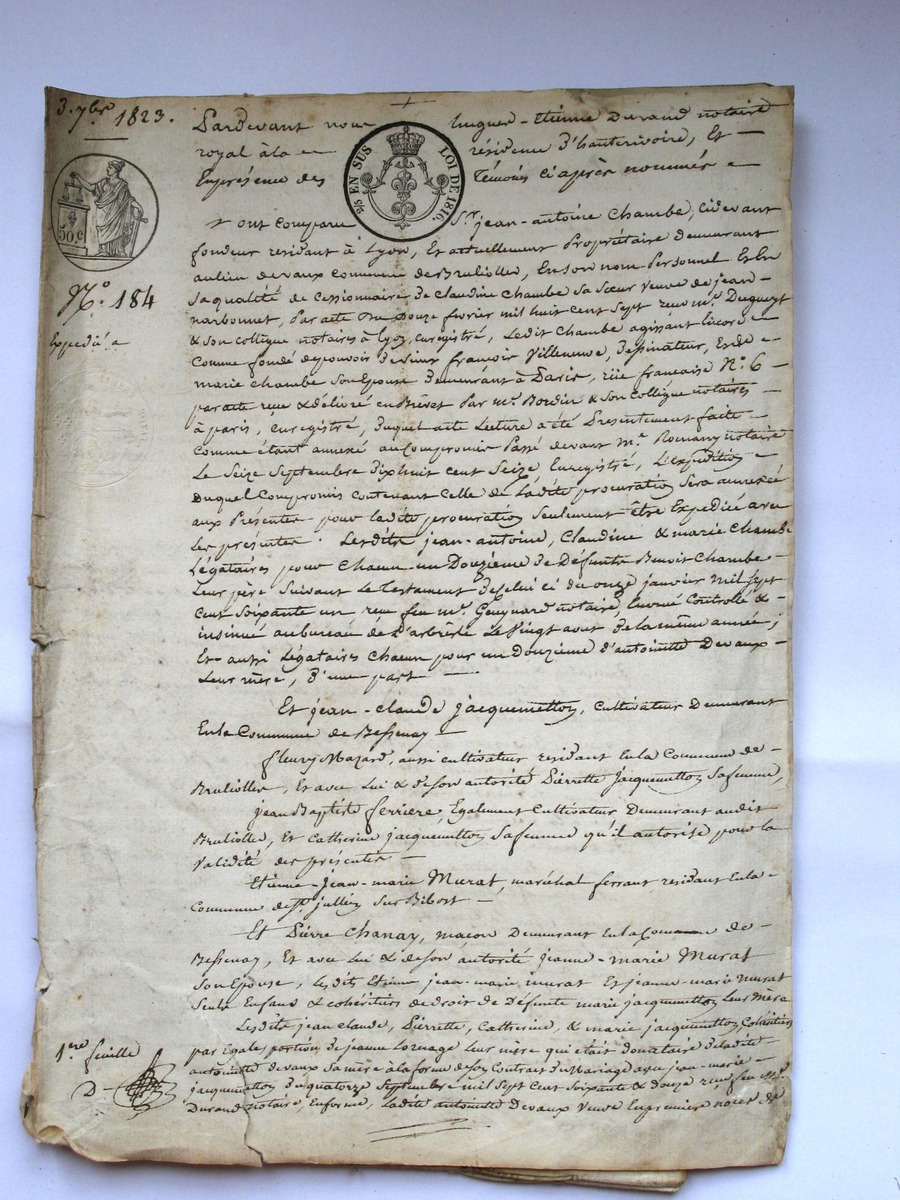 3. 7bre 1823.
Pardevant nous hugues-Etienne Durand notaire
royal à la résidence d'hauterivoire, Et
En présence des témoins ci après nommés
2/5 EN SUS LOI DE 1816.
50c
N.o 184
Expédiée
ont comparu Sr. jean-antoine Chambe, cidevant
fondeur residant à Lyon, Et actuellement Propriétaire demeurant
au lieu devaux commune de Brullolles, En son nom Personnel Et En
sa qualité de cessionnaire de Claudine Chambe sa sœur veuve de jean
narbonnet, par acte du Douze fevrier mil huit cent sept reçu Mr. Dugueyt
& son collègue notaires à Lyon, enregistré, Ledit Chambe agissant Encore
Comme fondé depouvoir de sieur françois Villeneuve, dessinateur, Et de
marie Chambe son Epouse demeurant à Paris, rüe francaise No. 6
par acte reçu & délivré en Brevet Par Mr. Bordin & son Collègue notaires
à paris, enregistré, duquel acte Lecture a été Presentement faite
Comme étant annexé au Compromis Passé devant Mr. Romany notaire
Le Seize Septembre dix huit cent Seize Enregistré, L'expédition
Duquel Compromis contenant Celle de Ladite procuration sera annexée
aux Présentes pour ladite procuration Seulement être Expediée avec
Les présentes. Lesdits jean-antoine, Claudine & marie Chambe
Légataires pour Chacun un Douzième de Défunt Benoit Chambe
Leur père Suivant Le testament de celui ci du onze janvier Mil sept
Cent Soixante un reçu feu Mr. Guynard notaire, Controllé &
insinué au bureau de L'arbresle Le Vingt aout de la même année;
Et aussi Légataires Chacun pour un Douzième d'antoinette Devaux
Leur mère, d'une part
Et jean-claude jacquemetton, Cultivateur Demeurant
En la Commune de Bessenay
fleury Mazard, aussi cultivateur residant En la Commune de
Brullolles, Et avec Lui & de son autorité Pierrette jacquemetton Sa femme,
jean Baptiste ferriere, Egalement Cultivateur Demeurant audit
Brullolle, Et Catherine jacquemetton Sa femme qu'il autorise pour la
Validité des présentes
Etienne-jean-marie Murat, maréchal ferrant residant En la
Commune de St. jullien Sur Bibost
Et Pierre Chanay, maçon Demeurant En la Commune de
Bessenay, Et avec Lui & de son autorité jeanne-marie Murat
Son Epouse, Lesdits Etienne jean-marie murat Et jeanne-marie murat
Seuls Enfans & cohéritiers de droit de Défunte marie jacquemetton Leur Mère
Lesdits jean claude, Pierrette, Catherine, & marie jacquemetton Cohéritiers
par Egale portion de jeanne Leur mère qui était donataire de ladite
antoinette devaux sa mère à la forme de son Contrat de Mariage avec jean-marie
jacquemetton du quatorze Septembre mil Sept Cent Soixante & douze reçu feu Mr.
Durand notaire, En forme, Ladite antoinette Devaux veuve En premières noces de
1ere feuille
D